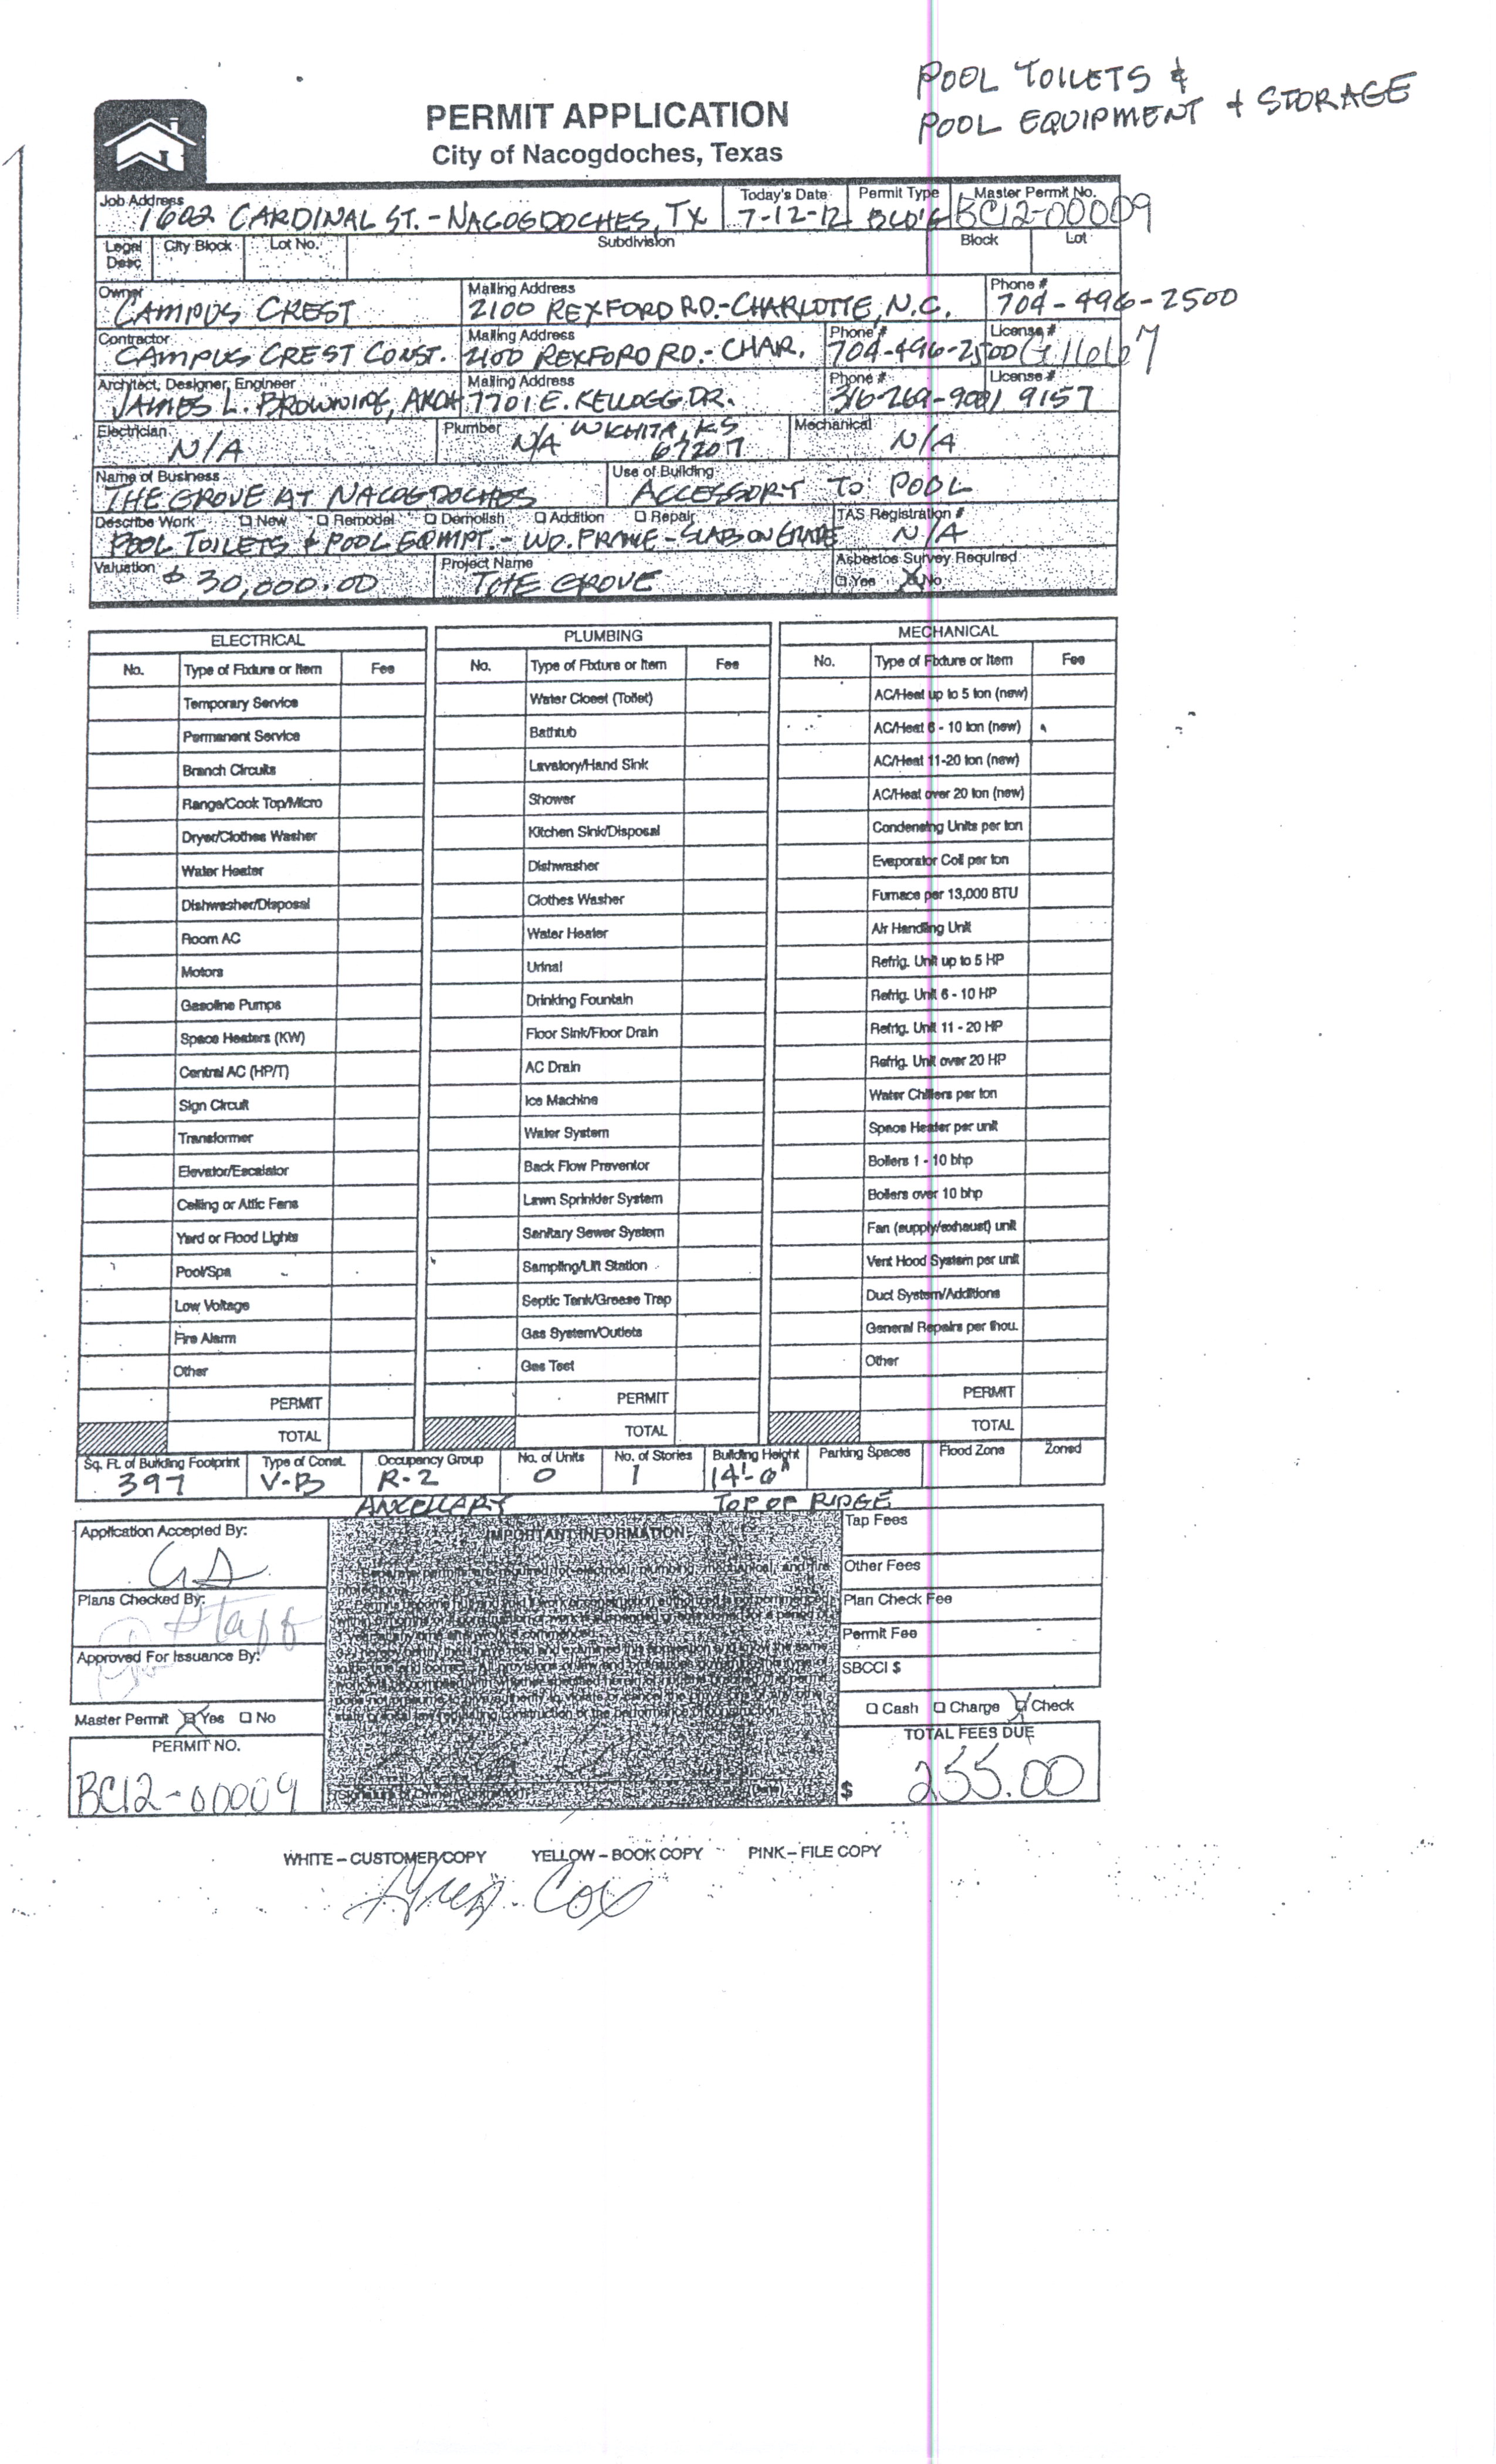 POOL TOILETS &
POOL EQUIPMENT & STORAGE
PERMIT APPLICATION
City of Nacogdoches, Texas
Job Address Today's Date Permit Type Master Permit No.
1602 CARDINAL ST. - NACOGDOCHES, TX 7-12-12 BLD'G BC12-00009
Legal Desc City Block Lot No. Subdivision Block Lot
Owner Mailing Address Phone #
CAMPUS CREST 2100 REXFORD RD. - CHARLOTTE, N.C. 704-496-2500
Contractor Mailing Address Phone # License #
CAMPUS CREST CONST. 2100 REXFORD RD. - CHAR. 704-496-2500
Architect, Designer, Engineer Mailing Address Phone # License #
JAMES L. BROWNING, ARCH 7701 E. KELLOGG DR. 316-269-9091 9157
Electrician Plumber WICHITA, KS Mechanical
N/A N/A 67207 N/A
Name of Business Use of Building
THE GROVE AT NACOGDOCHES ACCESSORY TO POOL
Describe Work New Remodel Demolish Addition Repair TAS Registration #
POOL TOILETS & POOL EQMPT. - WD. FRAME - SLAB ON GRADE N/A
Valuation Project Name Asbestos Survey Required
$ 30,000.00 THE GROVE Yes No
ELECTRICAL PLUMBING MECHANICAL
No. Type of Fixture or Item Fee No. Type of Fixture or Item Fee No. Type of Fixture or Item Fee
Temporary Service Water Closet (Toilet) AC/Heat up to 5 ton (new)
Permanent Service Bathtub AC/Heat 6 - 10 ton (new)
Branch Circuits Lavatory/Hand Sink AC/Heat 11-20 ton (new)
Range/Cook Top/Micro Shower AC/Heat over 20 ton (new)
Dryer/Clothes Washer Kitchen Sink/Disposal Condensing Units per ton
Water Heater Dishwasher Evaporator Coil per ton
Dishwasher/Disposal Clothes Washer Furnace per 13,000 BTU
Room AC Water Heater Air Handling Unit
Motors Urinal Refrig. Unit up to 5 HP
Gasoline Pumps Drinking Fountain Refrig. Unit 6 - 10 HP
Space Heaters (KW) Floor Sink/Floor Drain Refrig. Unit 11 - 20 HP
Central AC (HP/T) AC Drain Refrig. Unit over 20 HP
Sign Circuit Ice Machine Water Chillers per ton
Transformer Water System Space Heater per unit
Elevator/Escalator Back Flow Preventor Boilers 1 - 10 bhp
Ceiling or Attic Fans Lawn Sprinkler System Boilers over 10 bhp
Yard or Flood Lights Sanitary Sewer System Fan (supply/exhaust) unit
Pool/Spa Sampling/Lift Station Vent Hood System per unit
Low Voltage Septic Tank/Grease Trap Duct System/Additions
Fire Alarm Gas System/Outlets General Repairs per thou.
Other Gas Test Other
PERMIT PERMIT PERMIT
TOTAL TOTAL TOTAL
Sq. Ft. of Building Footprint Type of Const. Occupancy Group No. of Units No. of Stories Building Height Parking Spaces Flood Zone Zoned
397 V-B R-2 0 1 14'-0"
TOP OF RIDGE
Application Accepted By: IMPORTANT INFORMATION Tap Fees
Other Fees
Plans Checked By: Plan Check Fee
Staff
Permit Fee
Approved For Issuance By:
SBCCI $
Master Permit Yes No Cash Charge Check
PERMIT NO. TOTAL FEES DUE
BC12-00009 $ 255.00
WHITE – CUSTOMER COPY YELLOW – BOOK COPY PINK – FILE COPY
Greg Cox